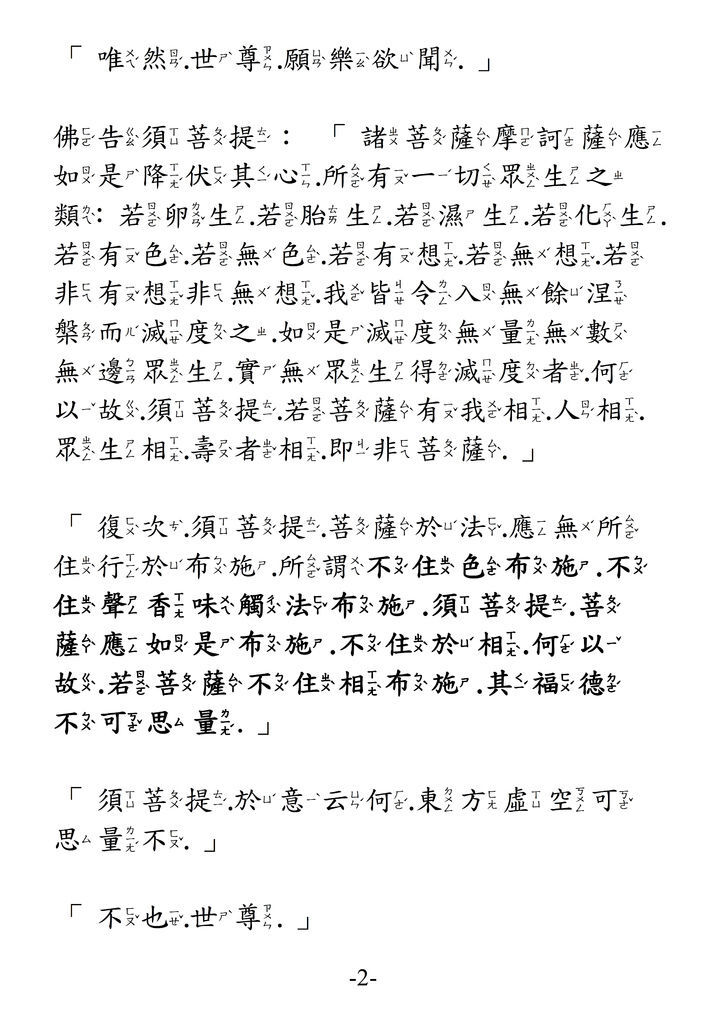 「 唯然.世尊.願樂欲聞. 」
佛告須菩提： 「 諸菩薩摩訶薩應
如是降伏其心.所有一切眾生之
類：若卵生.若胎生.若濕生.若化生.
若有色.若無色.若有想.若無想.若
非有想非無想.我皆令入無餘涅
槃而滅度之.如是滅度無量無數
無邊眾生.實無眾生得滅度者.何
以故.須菩提.若菩薩有我相.人相.
眾生相.壽者相.即非菩薩. 」
「 復次.須菩提.菩薩於法.應無所
住行於布施.所謂不住色布施.不
住聲香味觸法布施.須菩提.菩
薩應如是布施.不住於相.何以
故.若菩薩不住相布施.其福德
不可思量. 」
「 須菩提.於意云何.東方虛空可
思量不. 」
「 不也.世尊. 」
-2-